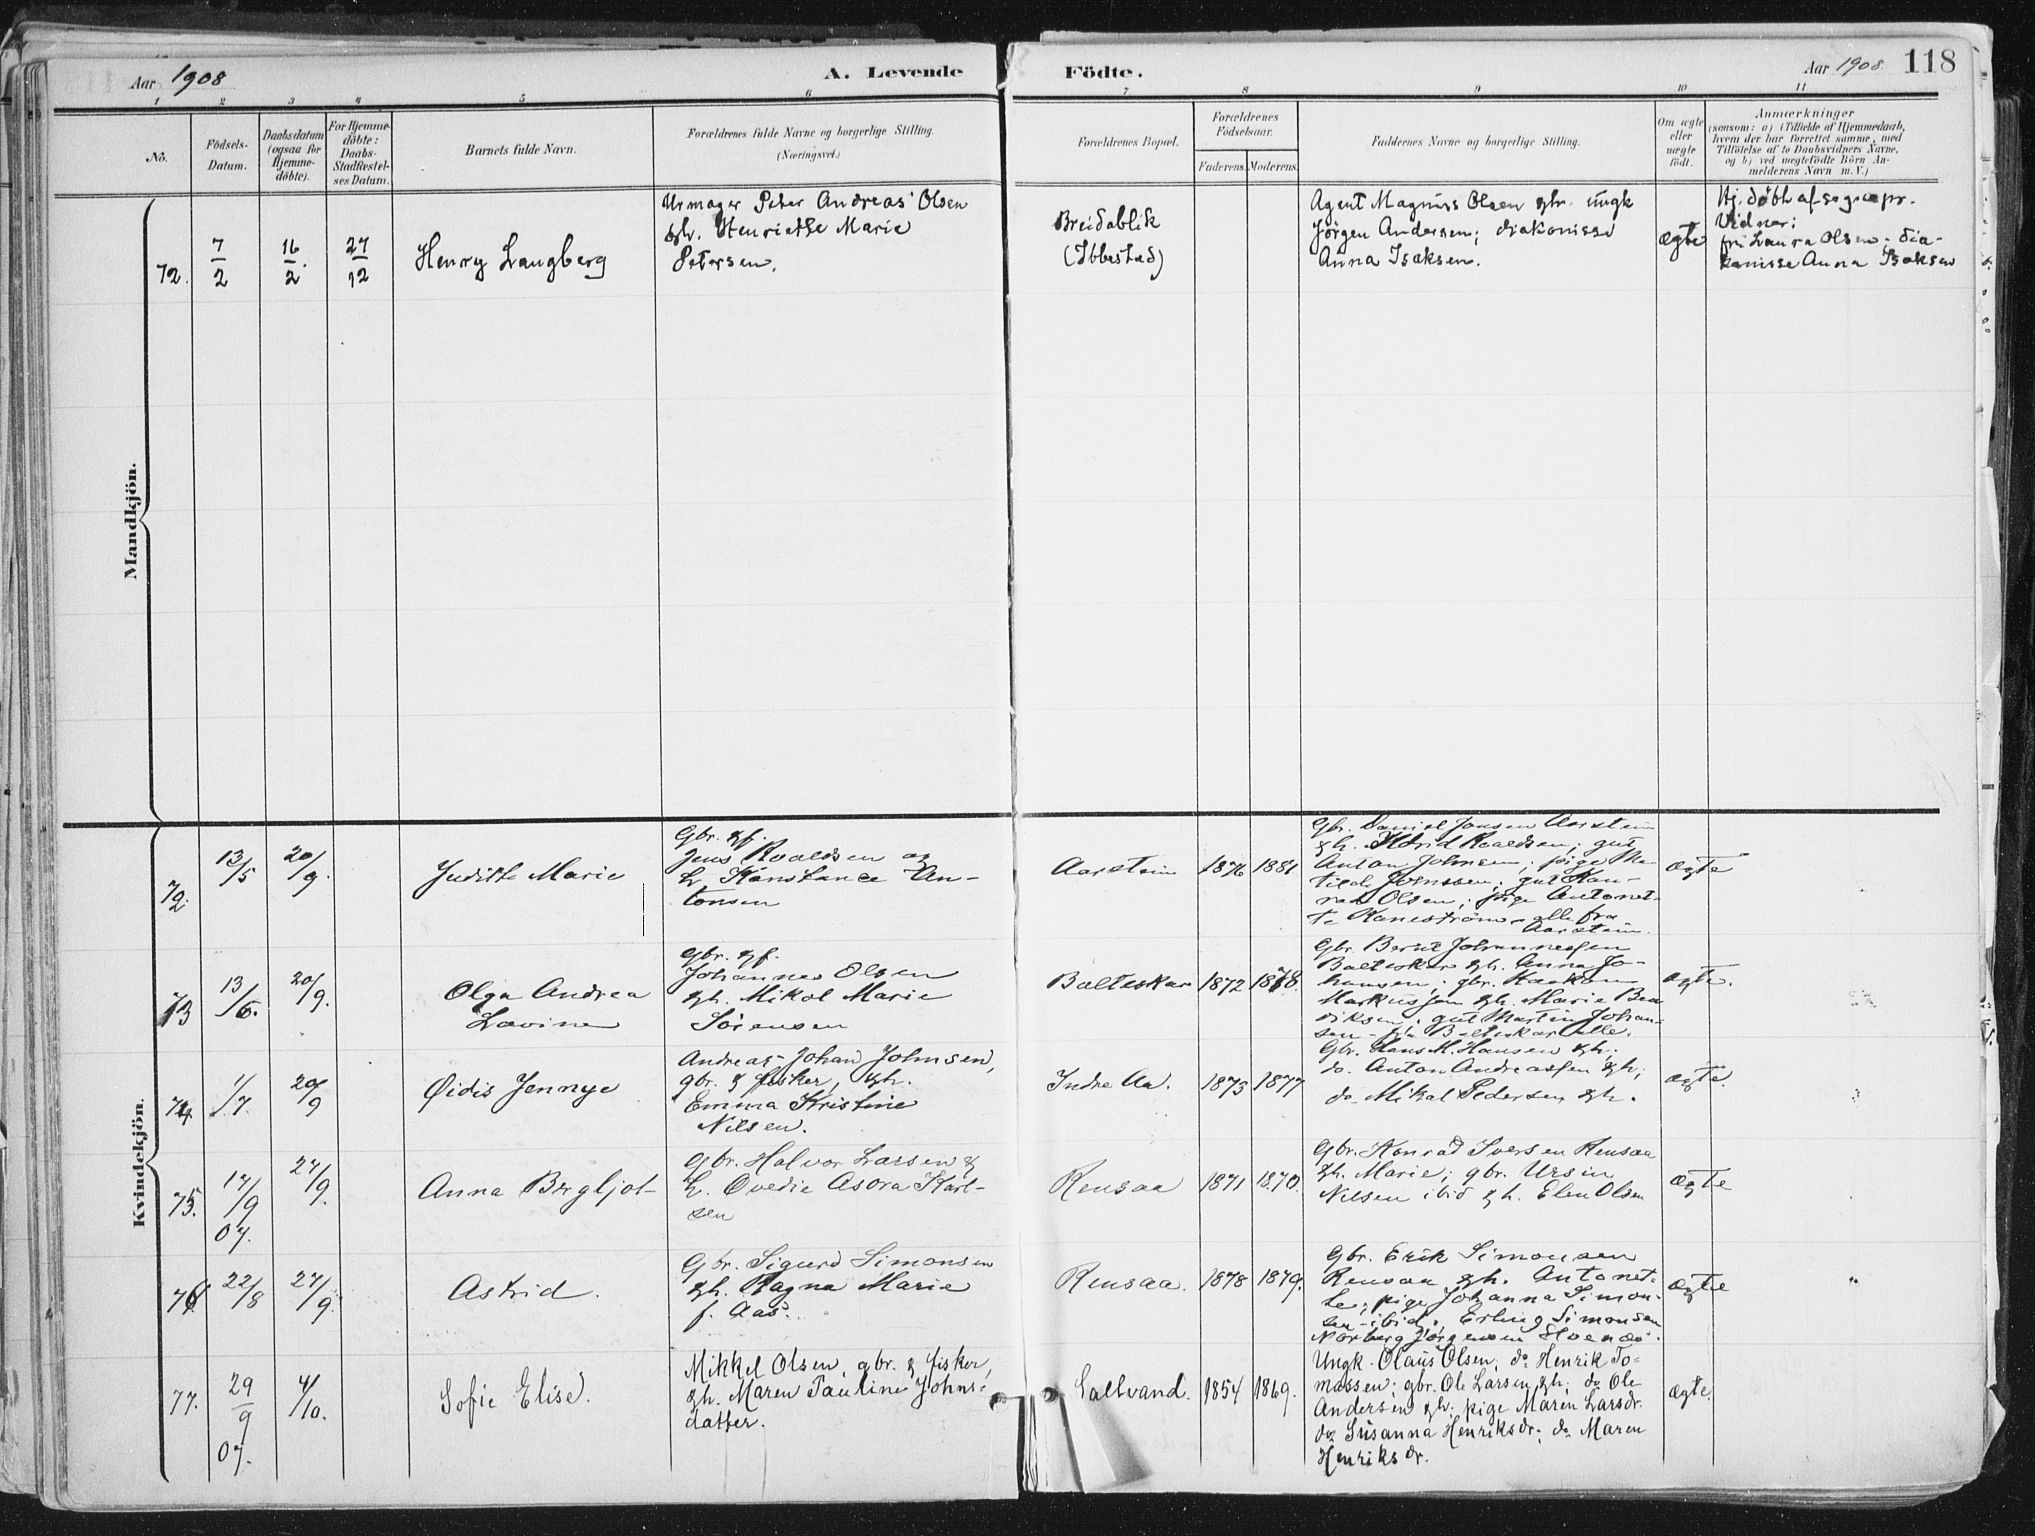 Aar 1908
A. Levende
Födte.
Aar 1908. 118
1 2 3 4 5 6 7 8 9 10 11
No.
Födsels-
Datum.
Daabsdatum
(ogsaa for
Hjemme-
döbte).
For Hjemme-
döbte:
Daabs-
Stadfæstel-
ses Datum.
Barnets fulde Navn.
Forældrenes fulde Navne og borgerlige Stilling.
(Næringsvei.)
Forældrenes Bopæl.
Forældrenes
Födselsaar.
Faderens. Moderens.
Faddernes Navne og borgerlige Stilling.
Om ægte
eller
uægte
födt.
Anmærkninger
(saasom: a) i Tilfælde af Hjemmedaab,
hvem der har forrettet samme, med
Tilföielse af to Daabsvidners Navne,
og b) ved uægtefödte Börn An-
melderens Navn m. V.)
Mandkjön.
72. 7/2 16/2. 27/12
Henry Langberg
Urmager Peter Andreas Olsen
&h. Henriette Marie
Petersen.
Breidablik
(Ibbestad)
Agent Magnus Olsen &h. ungk
Jørgen Andersen; diakonisse
Anna Isaksen.
ægte
Hj. døbt af sognepr.
Vidner:
fru Laura Olsen; dia-
konisse Anna Isaksen
Kvindekjön.
72. 13/5 20/9.
Judith Marie
Gbr. & f.
Jens Roaldsen og
h. Konstance An-
tonsen
Aarstein 1876 1881
Gbr. Daniel Jonsen Aarstein
&h. Roaldsen; gut
Anton Johnsen; pige Ma-
tilde Johnsen; gut Kon-
rad Olsen; pige Antonet-
te - alle fra
Aarstein.
ægte
73 13/6. 20/9.
Olga Andrea
Lovine
Gbr. & f.
Johannes Olsen
&h. Mikol Marie
Sørensen
Balteskar 1872 1878.
Gbr. Bernt Johannessen
Balteskar &h. Anna Jo-
hansen; gbr. Haakon
Markussen &h. Marie
diksen; gut Martin Johan-
sen - fra Balteskar alle.
ægte.
74 1/7. 20/9
Øidis Jennye
Andreas Johan Johnsen,
gbr. & fisker, &h.
Emma Kristine
Nilsen.
Indre Aa. 1873 1877
Gbr. Hans M. Hansen &h;
do. Anton Andreassen &h;
do Mikal Pedersen &h.
ægte.
75. 17/9 07. 27/9.
Anna Bergljot
Gbr. Halvor Larsen &
h. Ovedie Asora Karl-
sen
Rensaa 1871 1870.
Gbr. Konrad Iversen Rensaa
&h. Marie; gbr. Ursin
Nilsen ibid &h. Elen Olsen
ægte
76 22/8 27/9.
Astrid.
Gbr. Sigurd Simonsen
&h. Ragna Marie
f. Aas.
Rensaa. 1878 1879.
Gbr. Erik Simonsen
Rensaa &h. Antonet-
te; pige Johanna Simon-
sen - ibid; Erling Simonsen
Norberg Jørgensen
ægte
77. 29/9 07. 4/10.
Sofie Elise.
Mikkel Olsen, gbr. & fisker,
&h. Maren Pauline Johns-
datter.
Saltvand. 1854 1869.
Ungk. Olaus Olsen; do Henrik To-
massen; gbr. Ole Larsen &h; do Ole
Andersen &h; pige Maren Larsdr.
do Susanna Henriksdr; do Maren
Henriksdr.
ægte.